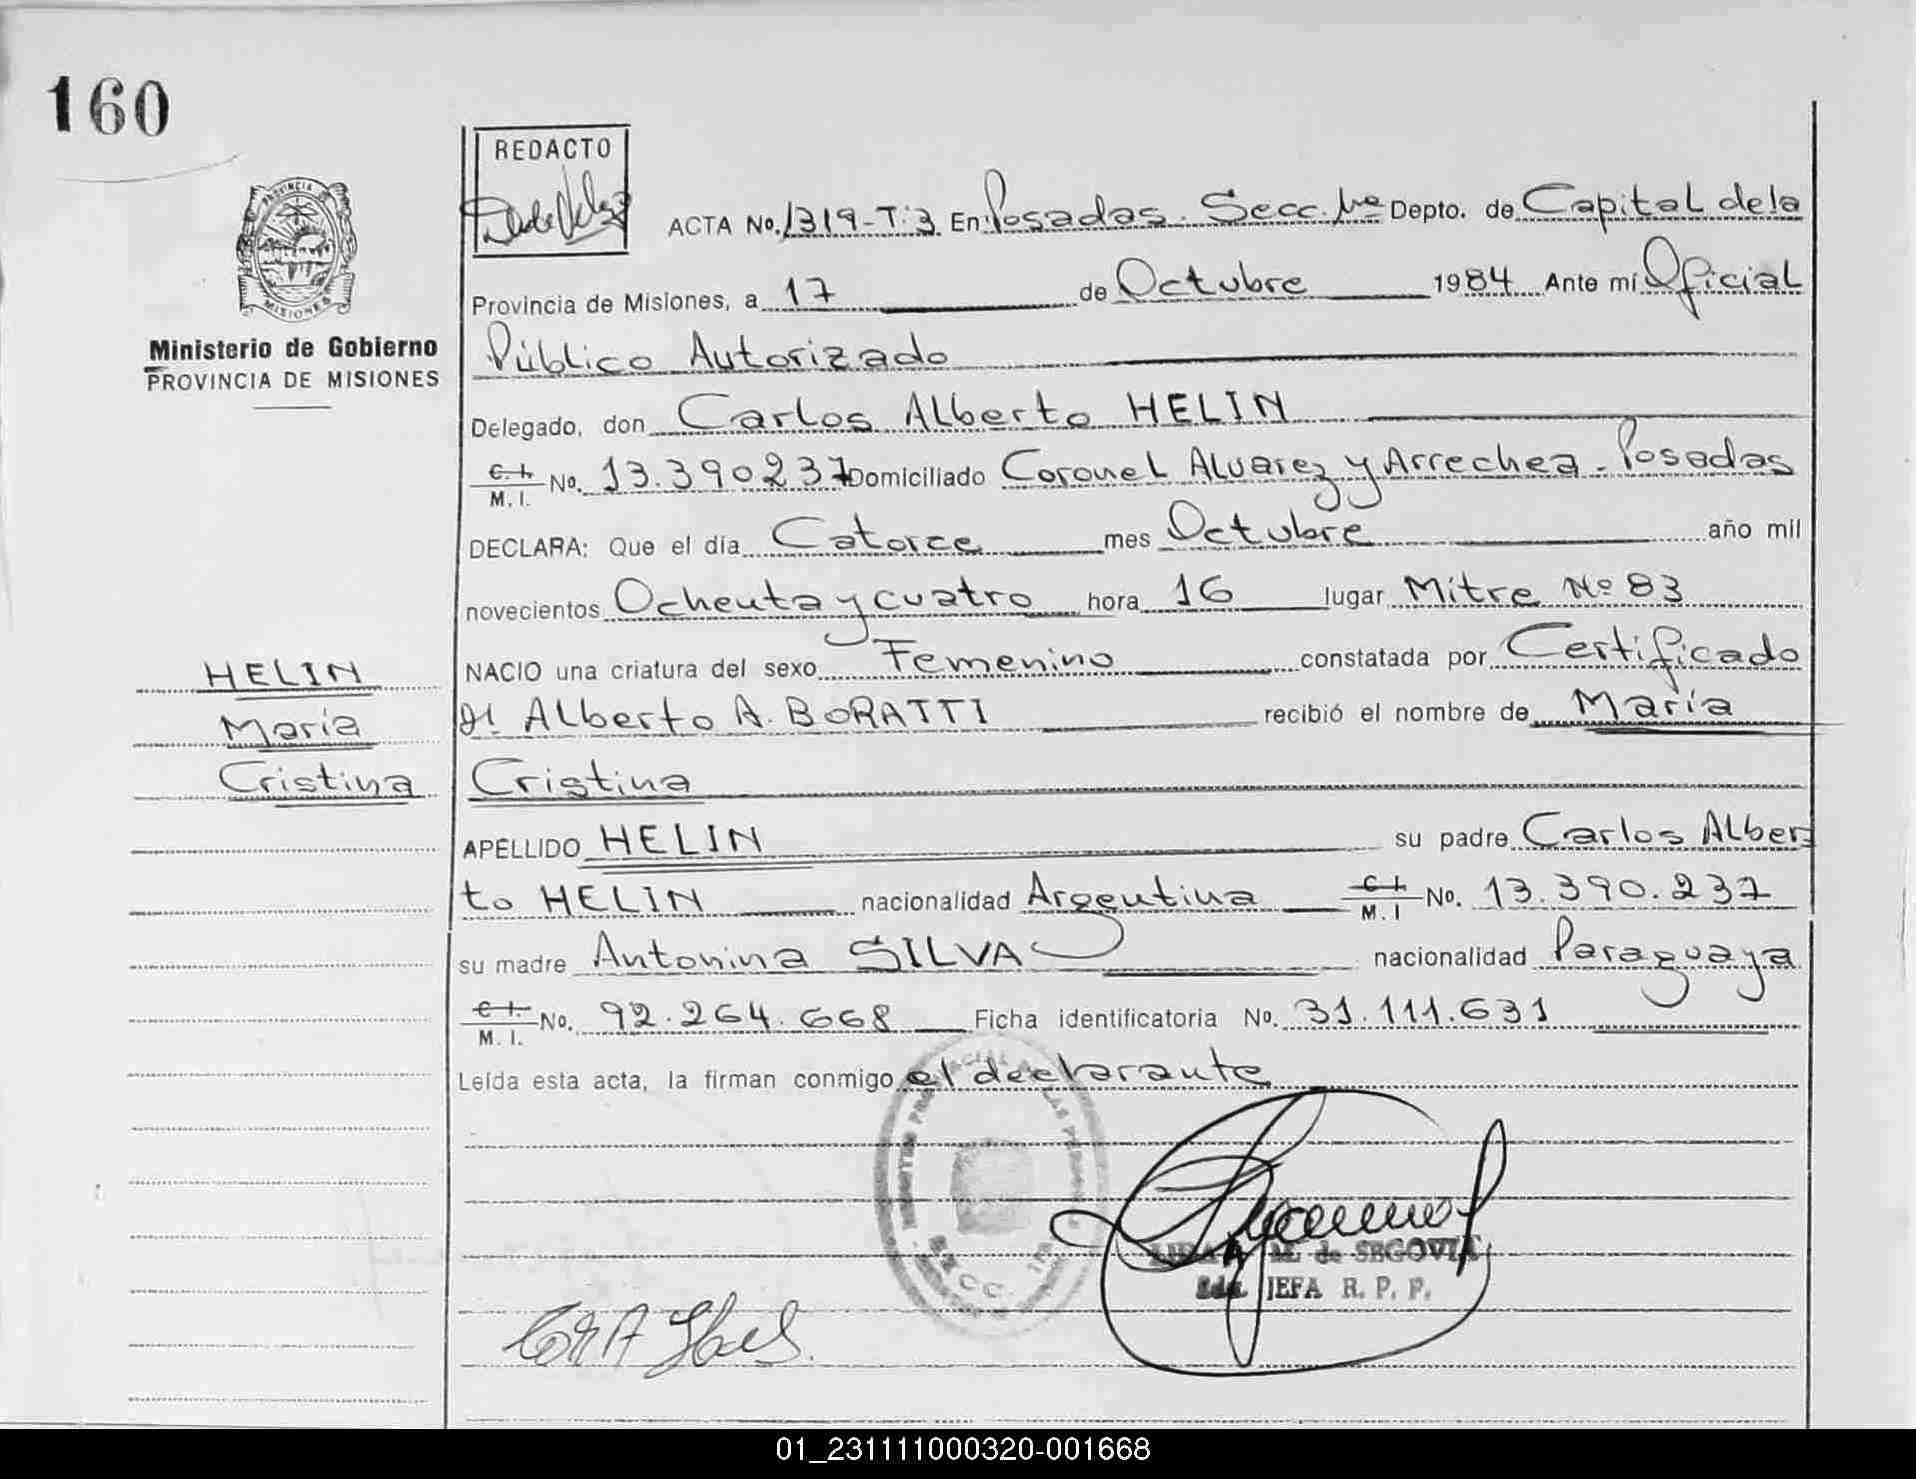 160
REDACTO
ACTA No. 1319-T:3 En Posadas. Secc. 1ra Depto. de Capital de la
Provincia de Misiones, a 17 de Octubre 1984 Ante mí Oficial
Ministerio de Gobierno
PROVINCIA DE MISIONES
Público Autorizado
Delegado, don Carlos Alberto HELIN
C.I. M.I. No. 13.390237 Domiciliado Coronel Alvarez y Arrechea - Posadas
DECLARA: Que el día Catorce mes Octubre año mil
novecientos Ochenta y cuatro hora 16 lugar Mitre Nº 83
NACIO una criatura del sexo Femenino constatada por Certificado
HELIN
María
Cristina
Alberto A. BORATTI recibió el nombre de María
Cristina
APELLIDO HELIN su padre Carlos Alber
to HELIN nacionalidad Argentina C.I. M.I No. 13.390.237
su madre Antonina SILVA nacionalidad Paraguaya
C.I. M.I. No. 92.264.668 Ficha identificatoria No. 31.111.631
Leída esta acta, la firman conmigo el declarante
de SEGOVIA
JEFA R. P. P.
01_231111000320-001668